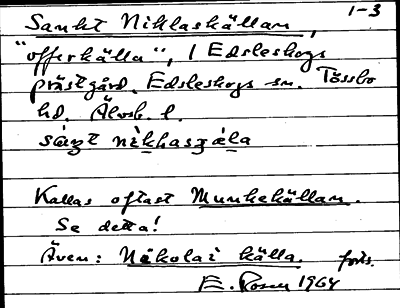 1-3
Sankt Niklaskällan,
"offerkälla", i Edsleskogs
prästgård. Edsleskogs sn. Tössbo
hd. Älvsb. l.
Kallas oftast Munkekällan.
Se detta!
Även: Nikolai källa. forts.
E. 1964